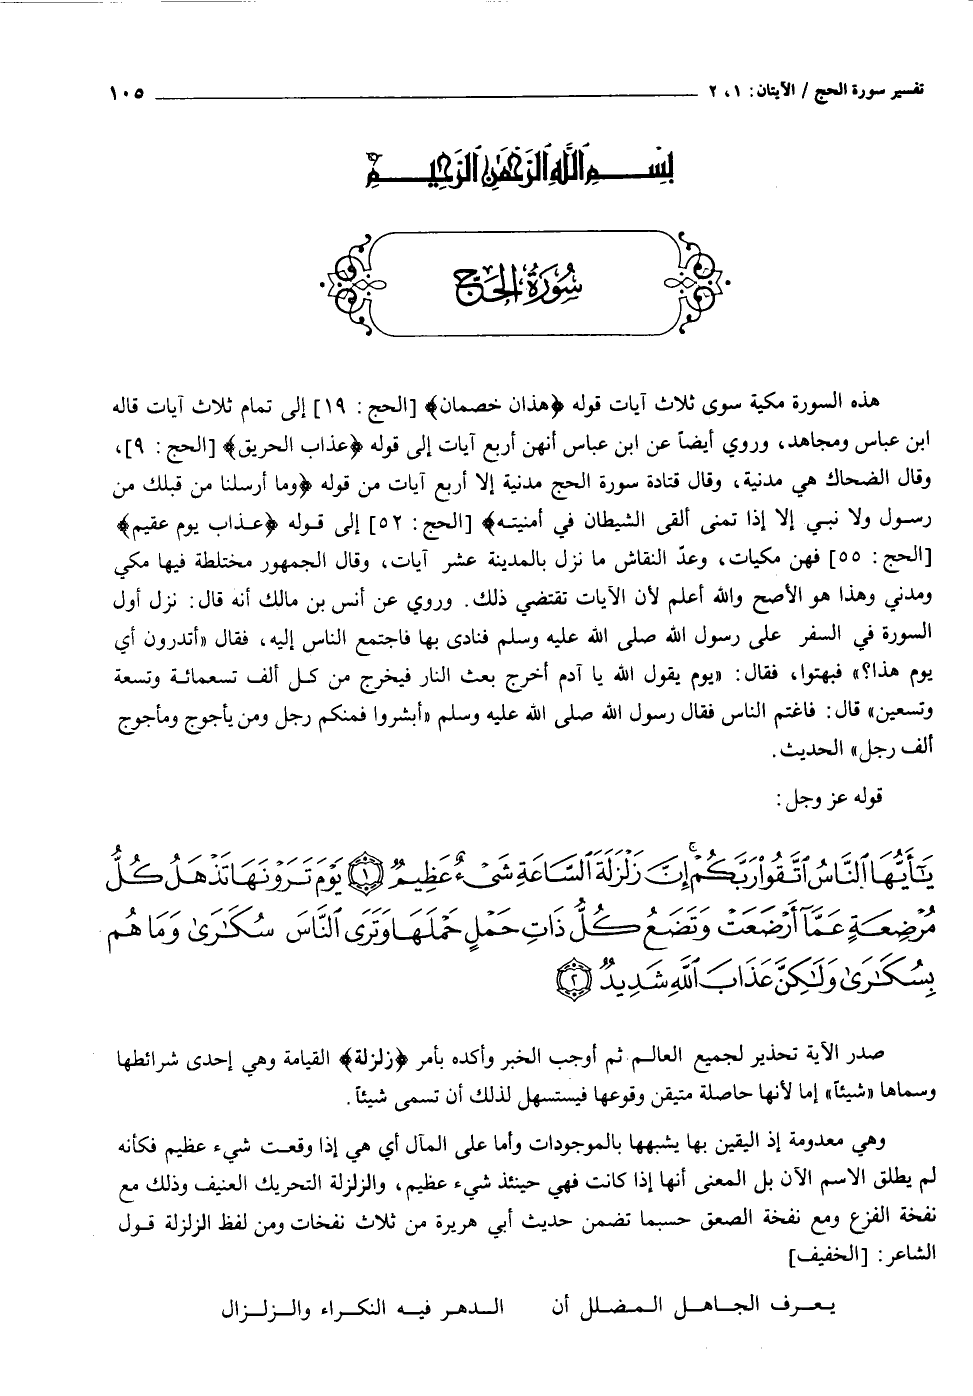 تفسير سورة الحج / الآيتان: ١، ٢ ١٠٥
بِسْمِ ٱللَّهِ ٱلرَّحْمَٰنِ ٱلرَّحِيمِ
سُورَةُ الحَجِّ
هذه السورة مكية سوى ثلاث آيات قوله ﴿هذان خصمان﴾ [الحج: ١٩] إلى تمام ثلاث آيات قاله
ابن عباس ومجاهد، وروي أيضاً عن ابن عباس أنهن أربع آيات إلى قوله ﴿عذاب الحريق﴾ [الحج: ٩]،
وقال الضحاك هي مدنية، وقال قتادة سورة الحج مدنية إلا أربع آيات من قوله ﴿وما أرسلنا من قبلك من
رسول ولا نبي إلا إذا تمنى ألقى الشيطان في أمنيته﴾ [الحج: ٥٢] إلى قوله ﴿عذاب يوم عقيم﴾
[الحج: ٥٥] فهن مكيات، وعدّ النقاش ما نزل بالمدينة عشر آيات، وقال الجمهور مختلطة فيها مكي
ومدني وهذا هو الأصح والله أعلم لأن الآيات تقتضي ذلك. وروي عن أنس بن مالك أنه قال: نزل أول
السورة في السفر على رسول الله صلى الله عليه وسلم فنادى بها فاجتمع الناس إليه، فقال «أتدرون أي
يوم هذا؟» فبهتوا، فقال: «يوم يقول الله يا آدم أخرج بعث النار فيخرج من كل ألف تسعمائة وتسعة
وتسعين» قال: فاغتم الناس فقال رسول الله صلى الله عليه وسلم «أبشروا فمنكم رجل ومن يأجوج ومأجوج
ألف رجل» الحديث.
قوله عز وجل:
يَٰٓأَيُّهَا ٱلنَّاسُ ٱتَّقُوا۟ رَبَّكُمْ ۚ إِنَّ زَلْزَلَةَ ٱلسَّاعَةِ شَىْءٌ عَظِيمٌ ١ يَوْمَ تَرَوْنَهَا تَذْهَلُ كُلُّ
مُرْضِعَةٍ عَمَّآ أَرْضَعَتْ وَتَضَعُ كُلُّ ذَاتِ حَمْلٍ حَمْلَهَا وَتَرَى ٱلنَّاسَ سُكَٰرَىٰ وَمَا هُم
بِسُكَٰرَىٰ وَلَٰكِنَّ عَذَابَ ٱللَّهِ شَدِيدٌ ٢
صدر الآية تحذير لجميع العالم ثم أوجب الخبر وأكده بأمر ﴿زلزلة﴾ القيامة وهي إحدى شرائطها
وسماها «شيئاً» إما لأنها حاصلة متيقن وقوعها فيستسهل لذلك أن تسمى شيئاً.
وهي معدومة إذ اليقين بها يشبهها بالموجودات وأما على المآل أي هي إذا وقعت شيء عظيم فكأنه
لم يطلق الاسم الآن بل المعنى أنها إذا كانت فهي حينئذ شيء عظيم، والزلزلة التحريك العنيف وذلك مع
نفخة الفزع ومع نفخة الصعق حسبما تضمن حديث أبي هريرة من ثلاث نفخات ومن لفظ الزلزلة قول
الشاعر: [الخفيف]
يعرف الجاهل المضلل أن الدهر فيه النكراء والزلزال